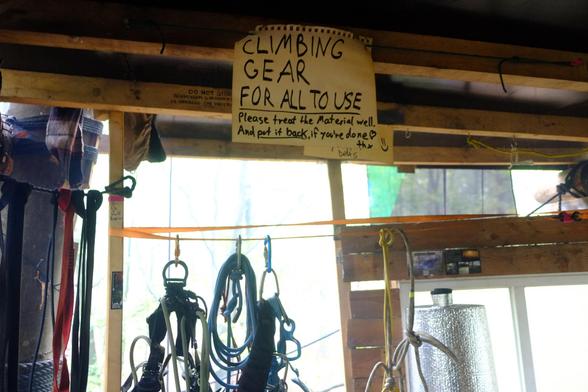 CLIMBING
GEAR
FOR ALL TO USE
Please treat the Material well.
And put it back, if you're done♡
thx
DO NOT